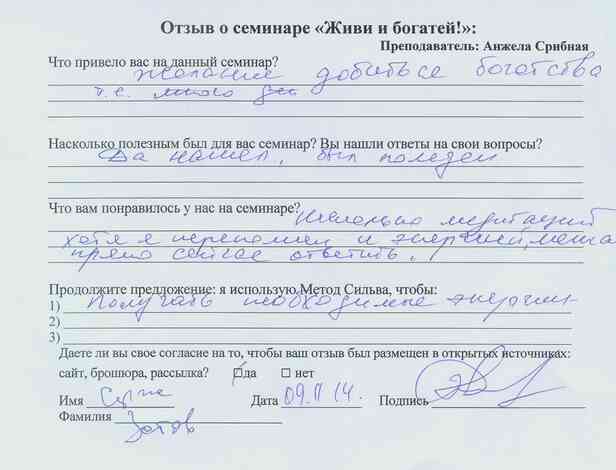 Отзыв о семинаре «Живи и богатей!»:
Преподаватель: Анжела Срибная
Что привело вас на данный семинар?
желание добиться богатства
т.е. много
Насколько полезным был для вас семинар? Вы нашли ответы на свои вопросы?
Да нашел, был полезен
Что вам понравилось у нас на семинаре?
Несколько медитаций
хотя я переполнен и энергией,
прямо сейчас ответить.
Продолжите предложение: я использую Метод Сильва, чтобы:
1) Получать необходимые энергии
2)
3)
Даете ли вы свое согласие на то, чтобы ваш отзыв был размещен в открытых источниках:
сайт, брошюра, рассылка? да нет
Имя Дата 09.11 14. Подпись
Фамилия Зотов